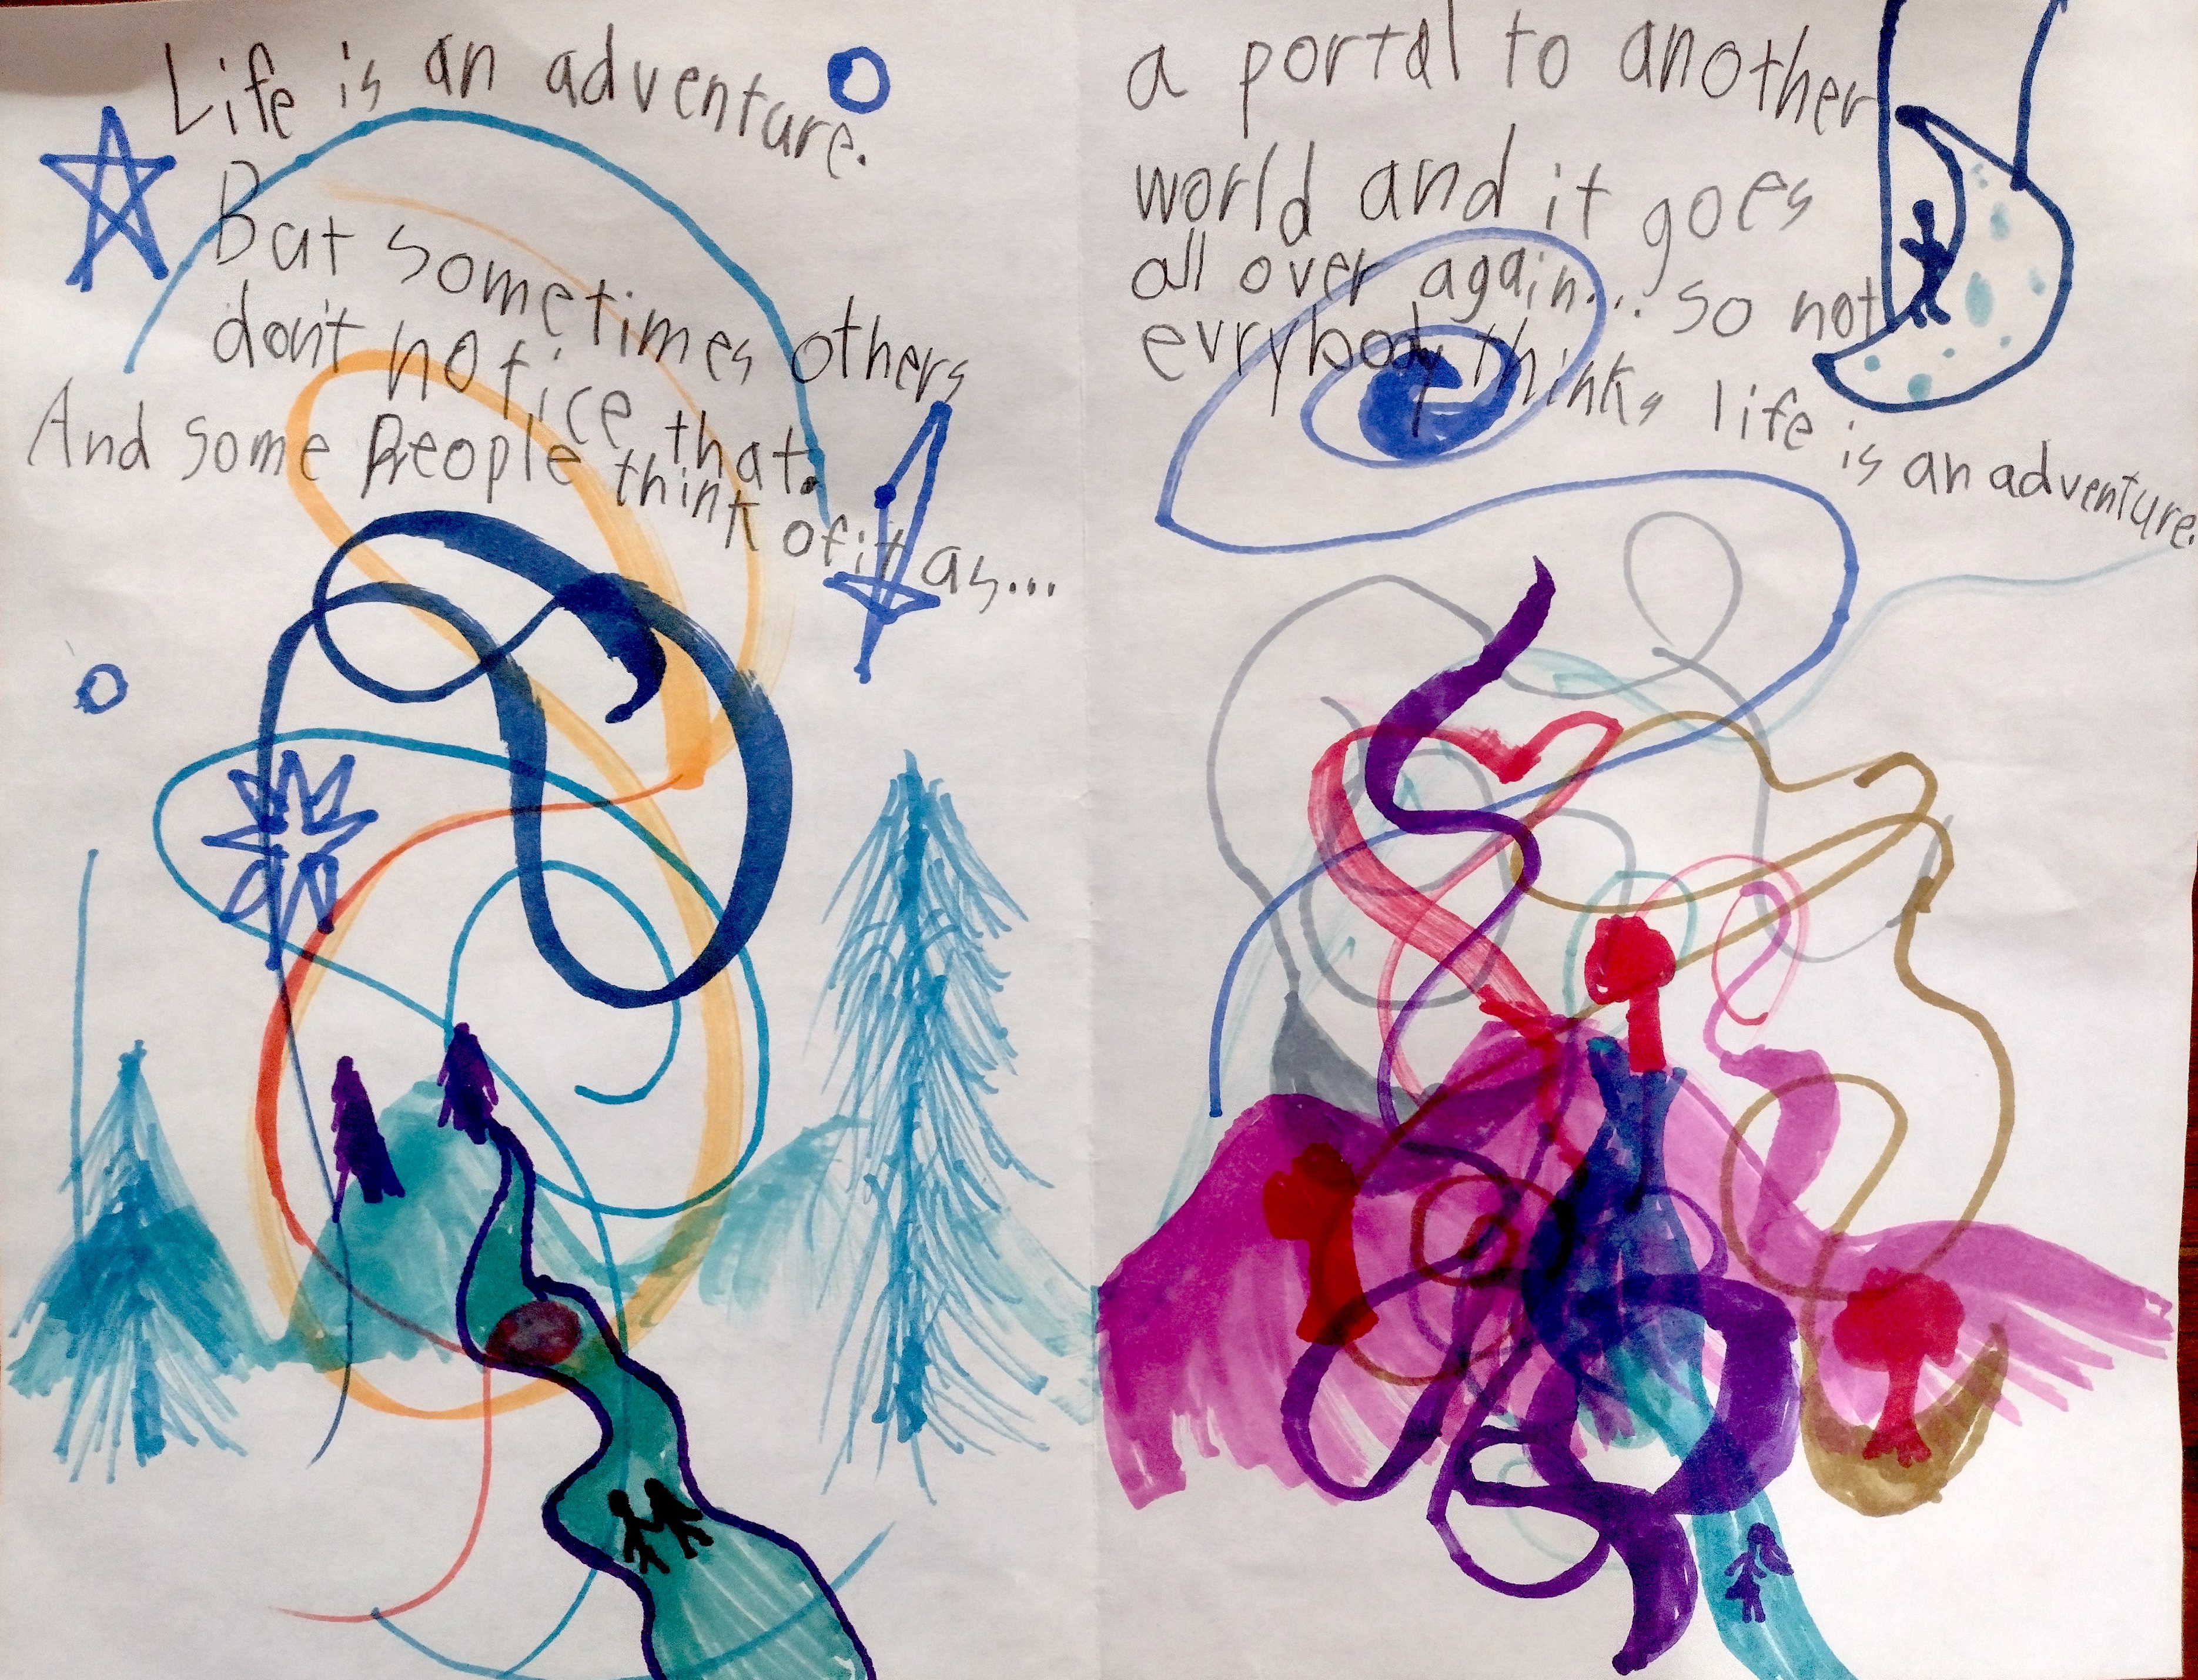 Life is an adventure.
But sometimes others
don't notice that.
And some People think of it as...
a portal to another
world and it goes
all over again... so not
evrybody thinks life is an adventure.